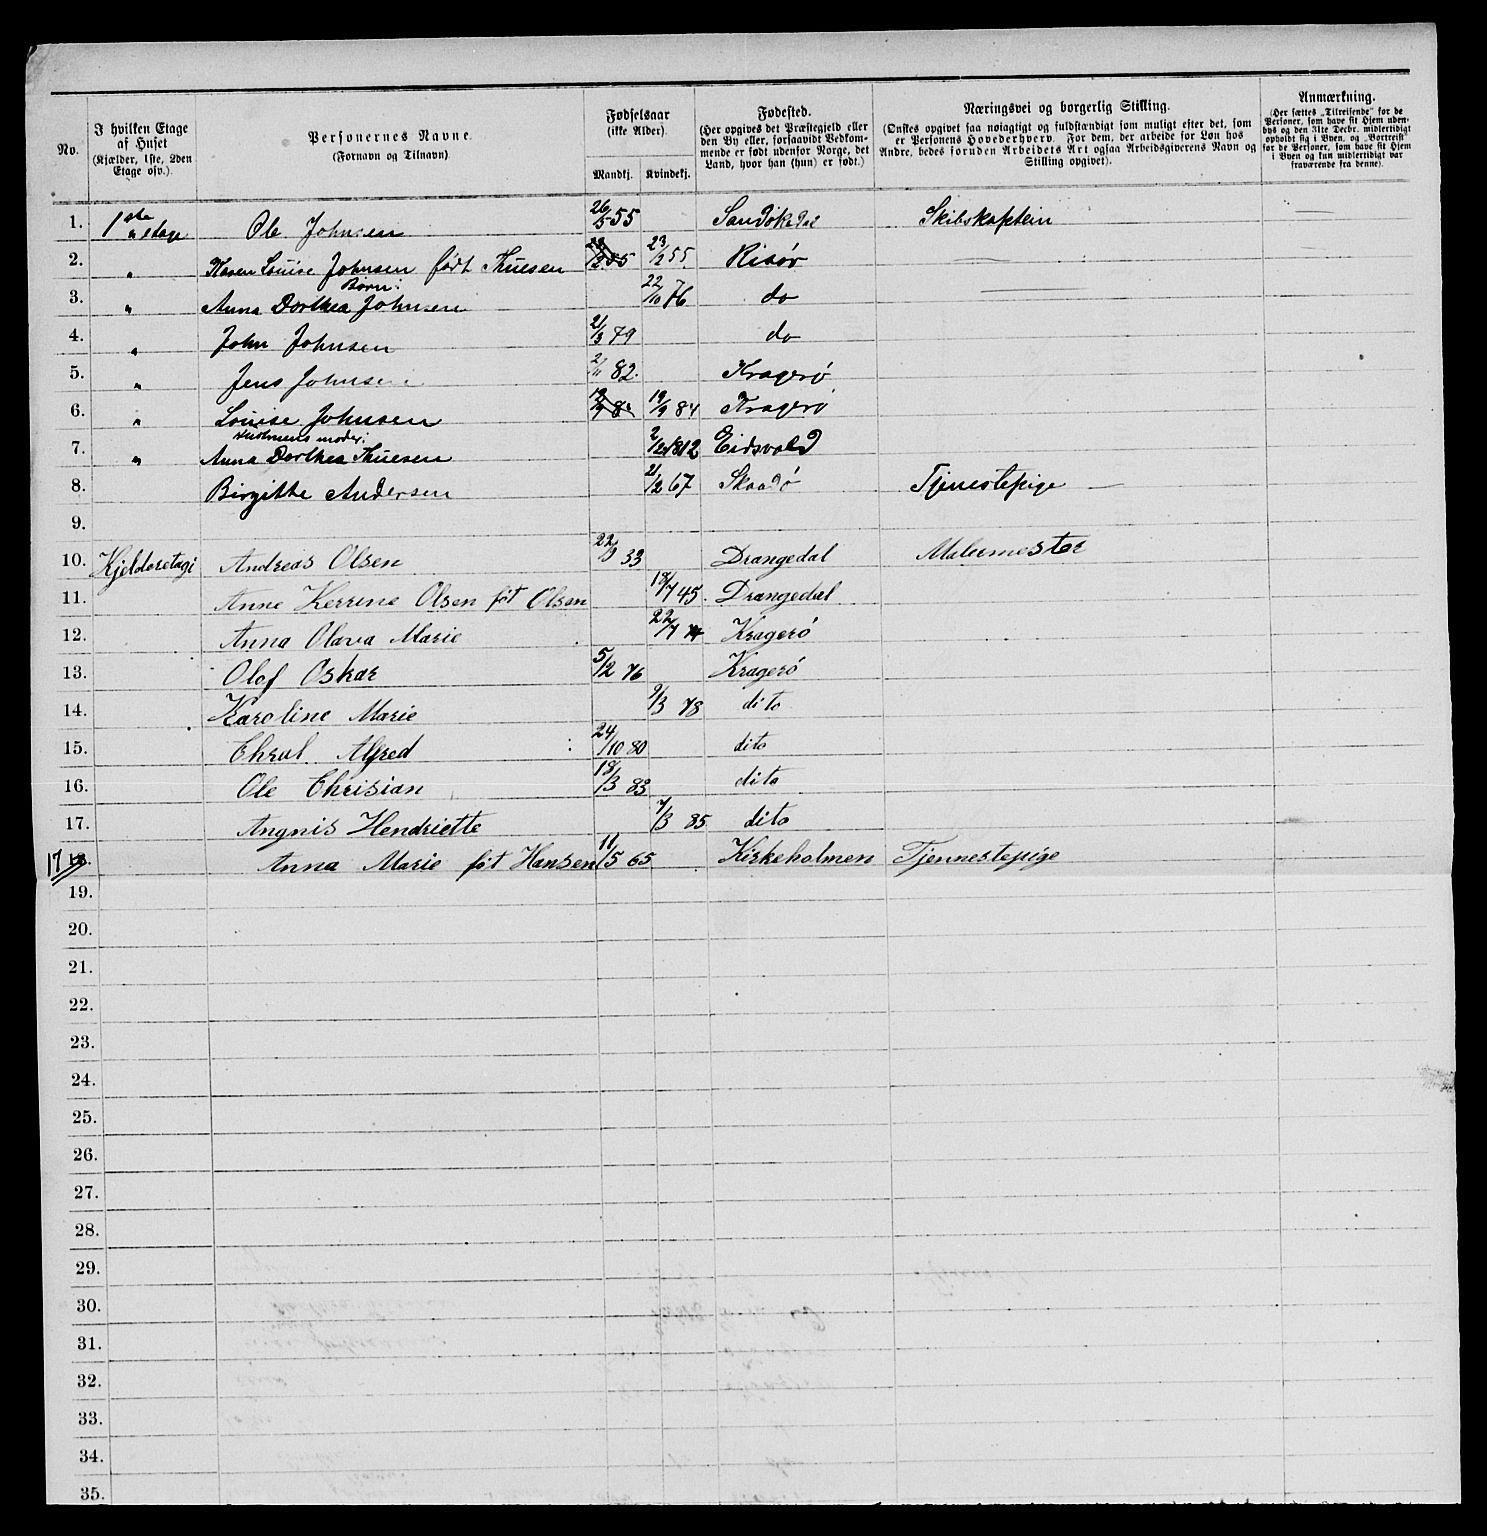 No.
I hvilken Etage af Huset (Kjælder, 1ste, 2den Etage osv.).
Personernes Navne. (Fornavn og Tilnavn)
Fødselsaar (ikke Alder).
Mandkj. Kvindekj.
Fødested. (Her opgives det Præstegjeld eller den By eller, forsaavidt Vedkommende er født udenfor Norge, det Land, hvor han (hun) er født.)
Næringsvei og borgerlig Stilling. (Ønskes opgivet saa nøiagtigt og fuldstændigt som muligt efter det, som er Personens Hovederhverv. For dem, der arbeide for Løn hos Andre, bedes foruden Arbeidets Art ogsaa Arbeidsgiverens Navn og Stilling opgivet).
Anmærkning. (Her sættes „Tilreisende" for de Personer, som have sit Hjem udenbys og den 31te Decbr. midlertidigt opholdt sig i Byen, og „Bortreist" for de Personer, som have sit Hjem i Byen og kun midlertidigt var fraværende fra denne).
1. 1ste etage Ole Johnsen 26/5 55 Sandøkedal Skibskaptein
2. " Karen Louise Johnsen født Thuesen 23/2 55 23/2 55. Risør
Børn:
3. " Anna Dorthea Johnsen 22/10 76 do
4. " John Johnsen 21/3 79 do
5. " Jens Johnsen 2/11 82. Kragerø
6. " Louise Johnsen 19/9 84 19/9 84 Kragerø
Kusmens moder:
7. " Anna Dorthea Thuesen 2/12 1812 Eidsvold
8. Birgitte Andersen 21/2 67 Skaadø Tjenestepige
9.
10. Kjelderetagi Andreas Olsen 22/9 33 Drangedal Malermester
11. Anne Kerrine Olsen føt Olsen 18/7 45. Drangedal
12. Anna Olava Marie 22/7 74 Kragerø
13. Olaf Oskar 5/12 76 Kragerø
14. Karoline Marie 9/3 78 dito
15. Alfred 24/10 80 dito
16. Ole Chrisian 18/3 83 dito
17. Angnis Hendriette 7/3 85 dito
17 18. Anna Marie føt Hansen 11/5 65 Kirkeholmen Tjennestepige
19.
20.
21.
22.
23.
24.
25.
26.
27.
28.
29.
30.
31.
32.
33.
34.
35.